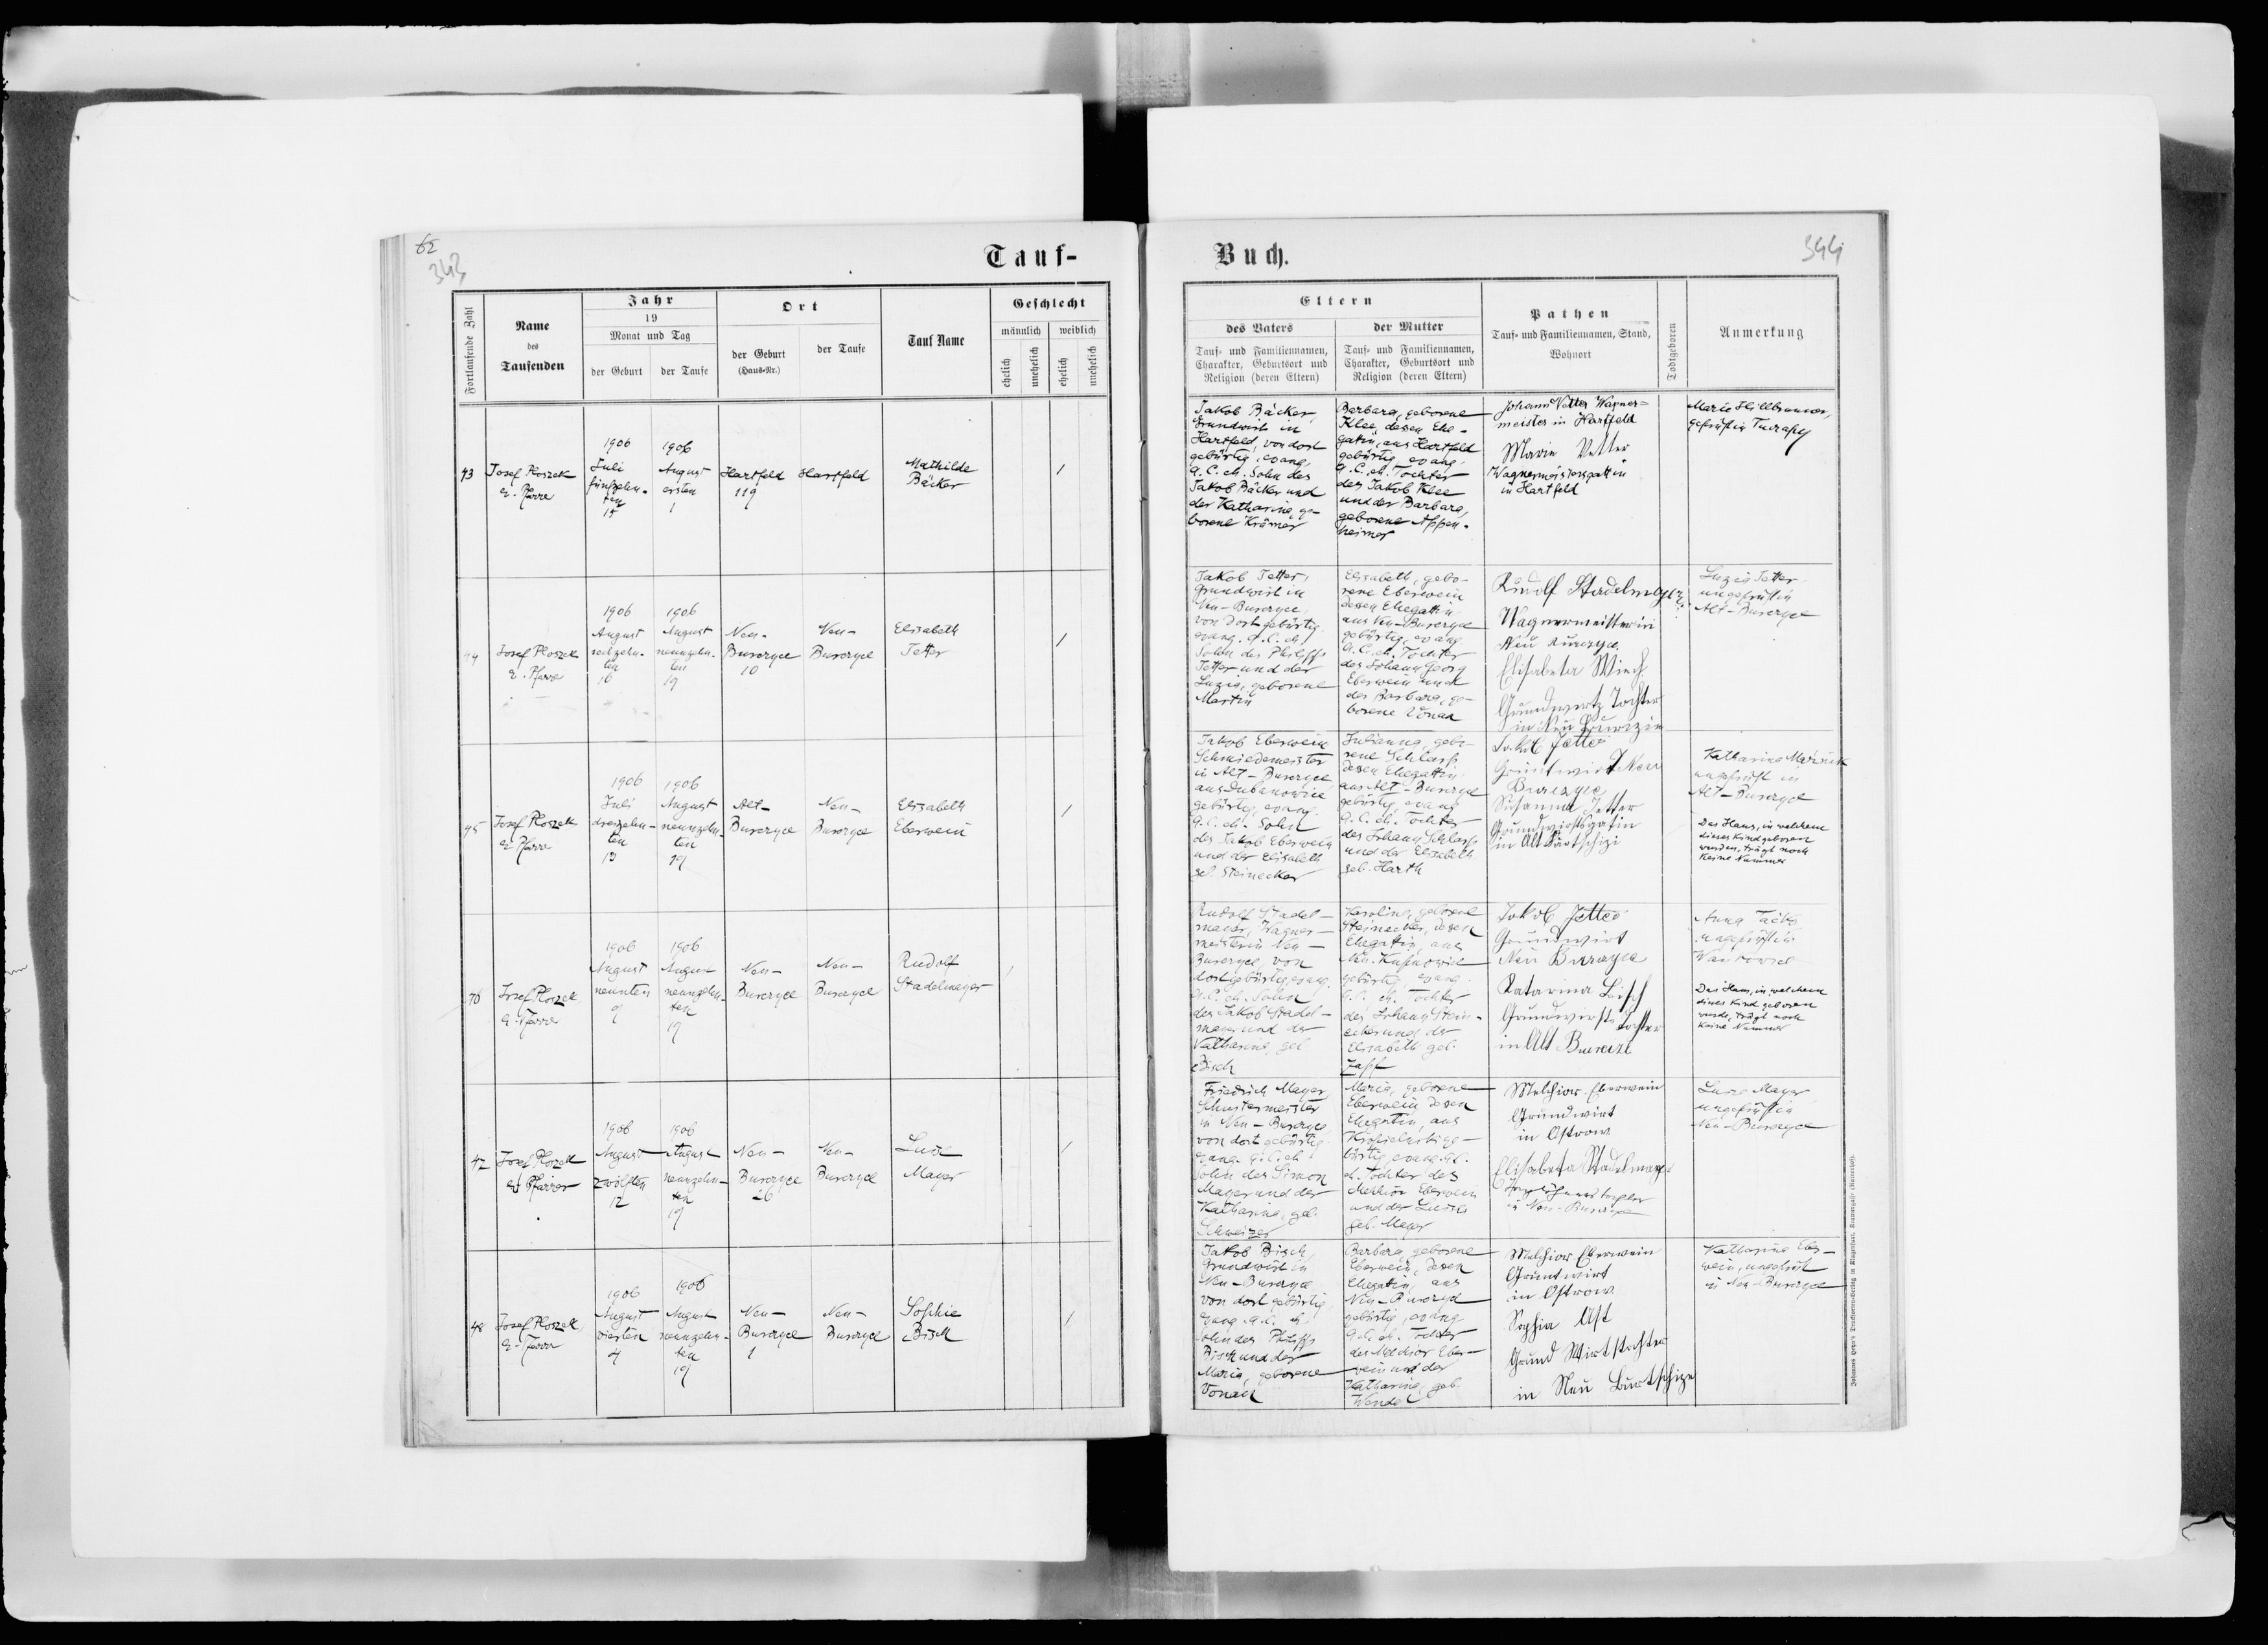 62
343
Tauf-
Fortlaufende Zahl
Name
des
Taufenden
Jahr
19
Monat und Tag
der Geburt
der Taufe
Ort
der Geburt
(Haus-Nr.)
der Taufe
Tauf Name
Geschlecht
männlich
weiblich
ehelich
unehelich
ehelich
unehelich
43
Josef Ploszek
1906
Juli
fünfzehn-
ten
15
1906
August
ersten
1
Hartfeld
119
Hartfeld
Mathilde
Bäcker
44
Josef Ploszek
1906
August
sechzehn-
ten
16
1906
August
neunzehn-
ten
19
Neu-
Burczyce
10
Neu-
Burczyce
Elisabeth
Jetter
45
Josef Ploszek
1906
Juli
dreizehn-
ten
13
1906
August
neunzehn-
ten
19
Alt-
Burczyce
Neu-
Burczyce
Elisabeth
Eberwein
46
Josef Ploszek
1906
August
neunten
9
1906
August
neunzehn-
ten
19
Neu-
Burczyce
Neu-
Burczyce
Rudolf
Stadelmayer
47
Josef Ploszek
1906
August
zwölften
12
1906
August
neunzehn-
ten
19
Neu-
Burczyce
26
Neu-
Burczyce
Mayer
48
Josef Ploszek
1906
August
vierten
4
1906
August
neunzehn-
ten
19
Neu-
Burczyce
1
Neu-
Burczyce
Sophie
Bisch
Buch.
344
Eltern
des Vaters
Tauf- und Familiennamen,
Charakter, Geburtsort und
Religion (deren Eltern)
der Mutter
Tauf- und Familiennamen,
Charakter, Geburtsort und
Religion (deren Eltern)
Pathen
Tauf- und Familiennamen, Stand,
Wohnort
Todtgeboren
Anmerkung
Jakob Bäcker,
Grundwirt in
Hartfeld, von dort
gebürtig, evang.
A.C. ch. Sohn des
Jakob Bäcker und
der Katharina, ge-
borene Krämer
Barbara, geborene
Klee, dessen Ehe-
gatin, aus Hartfeld
gebürtig, evang.
A.C. ch. Tochter
des Jakob Klee
und der Barbara,
geborene Appen-
heimer
Johann Vetter Wagner-
meister in Hartfeld
Marie Vetter
Wagnermeistersgattin
in Hartfeld
Marie Hillbrunner,
geprüft in
Jakob Jetter,
Grundwirt in
Neu-Burczyce,
von dort gebürtig
evang. A.C. ch.
Sohn des Philipp
Jetter und der
Luzia, geborene
Martin
Elisabeth, gebo-
rene Eberwein
dessen Ehegattin
aus Neu-Burczyce
gebürtig, evang.
A.C. ch. Tochter
des Johann Georg
Eberwein und
der Barbara, ge-
borene Vonau
Rudolf Stadelmayer
Wagnermeister in
Neu Burczyce
Elisabeta
Grundwirts Tochter
in Neu
Luzia Jetter
ungeprüft in
Alt-Burczyce
Jakob Eberwein
Schmiedemeister
in Alt-Burczyce
aus Dubanowice
gebürtig, evang.
A.C. ch. Sohn
des Jakob Eberwein
und der Elisabeth
geb. Steinecker
Julianna, gebo-
rene Schlarp
dessen Ehegattin
aus Alt-Burczyce
gebürtig, evang
A.C. ch. Tochter
des Johann Schlarp
und der Elisabeth
geb. Harth
Jakob Jetter
Gruntwirt Neu
Burczyce
Susanna Jetter
Grundwirtsgatin
in Alt
Katharina
ungeprüft in
Alt-Burczyce
Das Haus, in welchem
dieses Kind geboren
wurden, trägt noch
keine Nummer
Rudolf Stadel-
mayer, Wagner-
meister in Neu-
Burczyce, von
dort gebürtig, evang.
A.C. ch. Sohn
des Jakob Stadel-
mayer und der
Katharina, geb
Bisch
Karolina, geborene
Steinecker, dessen
Ehegattin, aus
gebürtig evang.
A.C. ch. Tochter
des Johann Stein-
ecker und der
Elisabeth geb.
Zapf
Jakob Jetter
Grundwirt
Neu Burczyce
Katarina
Grundwirts tochter
in Alt
Anna
ungeprüft in
Das Haus, in welchem
dieses Kind geboren
wurde, trägt noch
keine Nummer
Friedrich Mayer
Schustermeister
in Neu-Burczyce
von dort gebürtig
evang. A.C. ch
Sohn des Simon
Mayer und der
Katharina, geb.
Schweizer
Maria, geborene
Eberwein dessen
Ehegatin, aus
bürtig, evang. A.C.
ch. Tochter des
Melchior Eberwein
und der
geb. Mayer
Melchior Eberwein
Grundwirt
in Ostrow
Elisabeta Stadelmayer
in Neu-Burczyce
Mayer
ungeprüft in
Neu-Burczyce
Jakob Bisch,
Grundwirt in
Neu-Burczyce
von dort gebürtig,
evang. A.C. ch.
Sohn des Philipp
Bisch und der
Maria, geborene
Vonau
Barbara, geborene
Eberwein, dessen
Ehegatin, aus
Neu-Burczyce
gebürtig, evang
A.C. ch. Tochter
des Melchior Eber-
wein und der
Katharina, geb.
Wendel
Melchior Eberwein
Gruntwirt
in Ostrow
Sophia Ast
Grund Wirtstochter
in Neu Burtschize
Katharina Eber-
wein, ungeprüft
in Neu-Burczyce